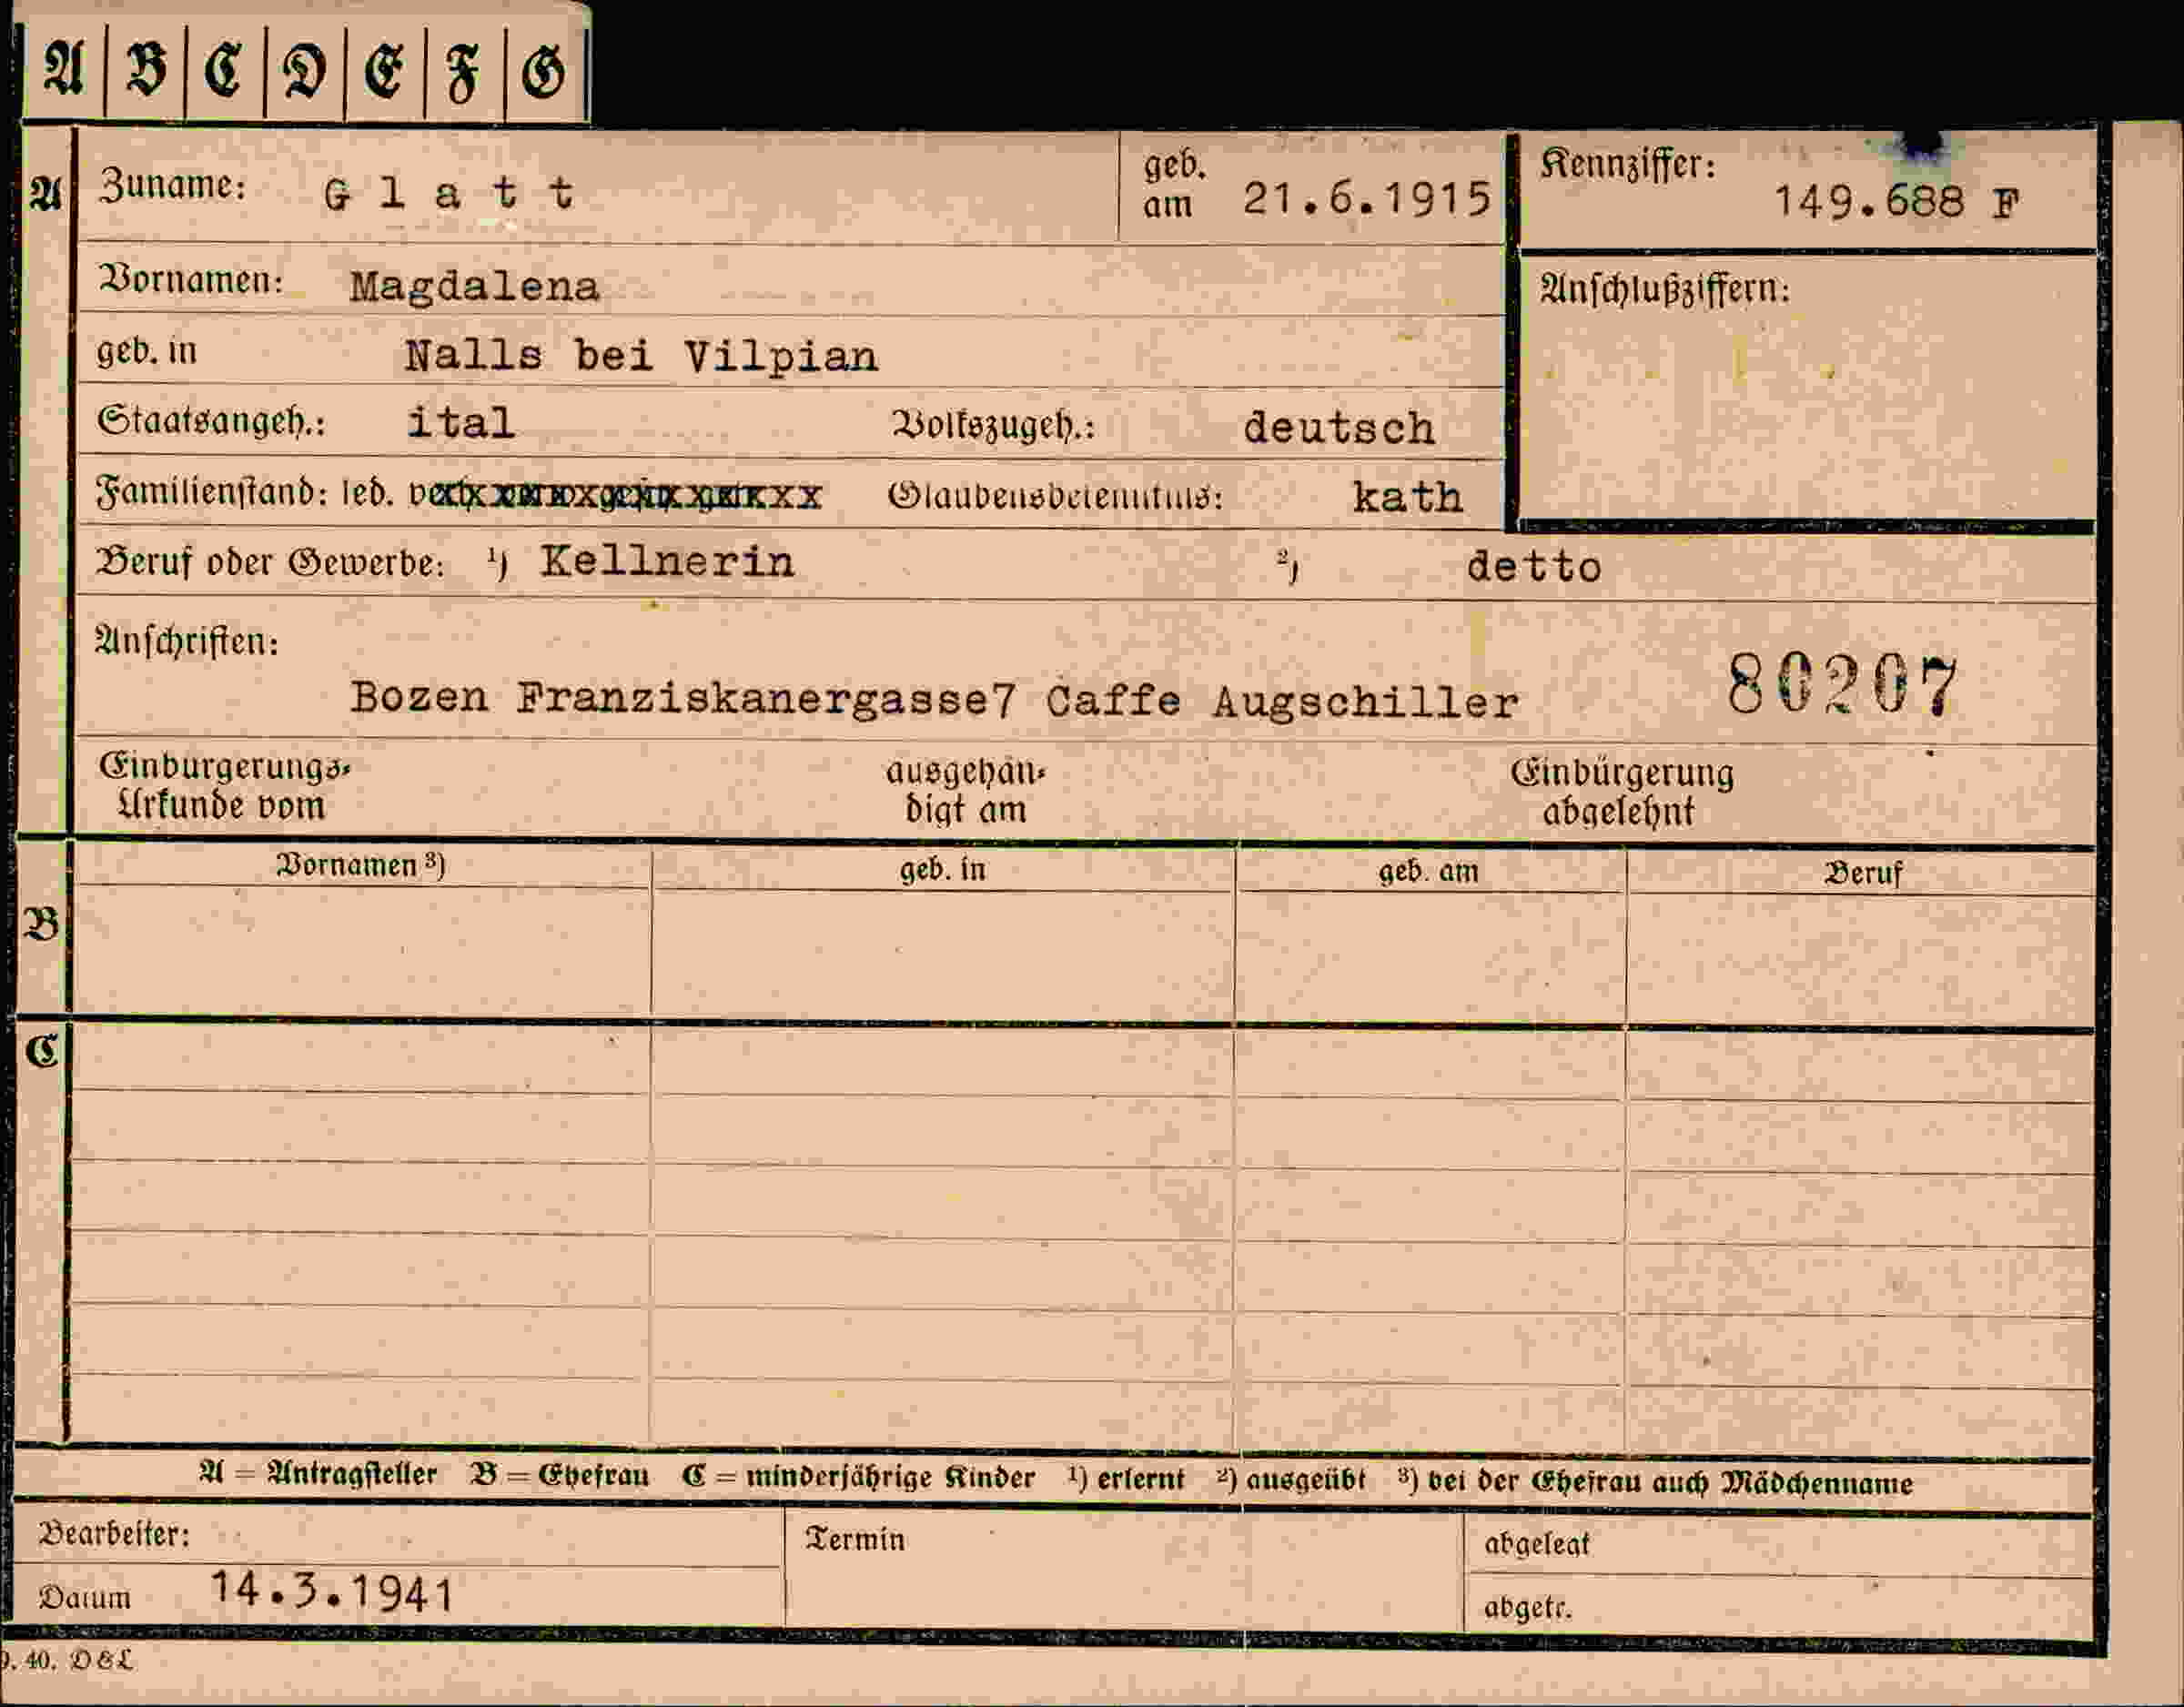 A B C D E F G
A Zuname: Glatt geb. am 21.6.1915 Kennziffer: 149.688 F
Vornamen: Magdalena Anschlußziffern:
geb. in Nalls bei Vilpian
Staatsangeh.: ital Volkszugeh.: deutsch
Familienstand: led. Glaubensbekenntnis: kath
Beruf oder Gewerbe: ¹) Kellnerin ²) detto
Anschriften:
Bozen Franziskanergasse7 Caffe Augschiller 80207
Einbürgerungs-
Urkunde vom
ausgehän-
digt am
Einbürgerung
abgelehnt
Vornamen ³) geb. in geb. am Beruf
B
C
A = Antragsteller B = Ehefrau C = minderjährige Kinder ¹) erlernt ²) ausgeübt ³) bei der Ehefrau auch Mädchenname
Bearbeiter: Termin abgelegt
Datum 14.3.1941 abgetr.
40. D&L